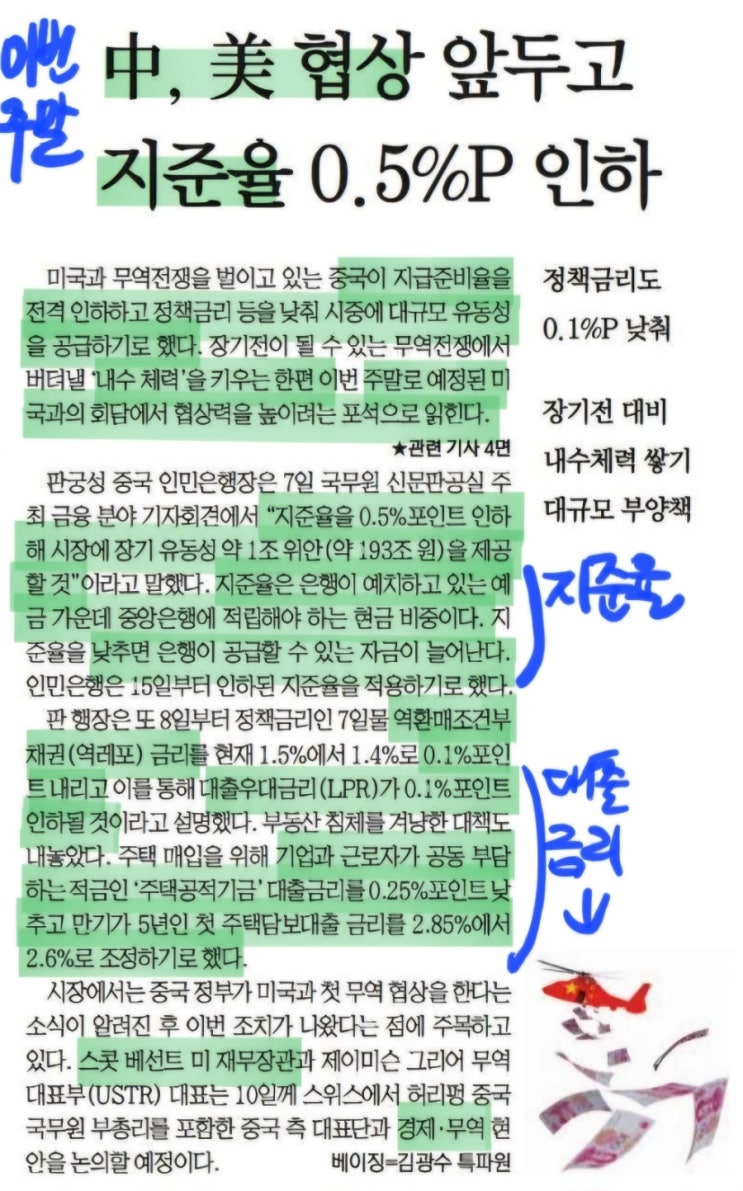 이번
주말
中, 美 협상 앞두고
지준율 0.5%P 인하
미국과 무역전쟁을 벌이고 있는 중국이 지급준비율을
전격 인하하고 정책금리 등을 낮춰 시중에 대규모 유동성
을 공급하기로 했다. 장기전이 될 수 있는 무역전쟁에서
버텨낼 ‘내수 체력’을 키우는 한편 이번 주말로 예정된 미
국과의 회담에서 협상력을 높이려는 포석으로 읽힌다.
★관련 기사 4면
판궁성 중국 인민은행장은 7일 국무원 신문판공실 주
최 금융 분야 기자회견에서 “지준율을 0.5%포인트 인하
해 시장에 장기 유동성 약 1조 위안(약 193조 원)을 제공
할 것”이라고 말했다. 지준율은 은행이 예치하고 있는 예
금 가운데 중앙은행에 적립해야 하는 현금 비중이다. 지
준율을 낮추면 은행이 공급할 수 있는 자금이 늘어난다.
인민은행은 15일부터 인하된 지준율을 적용하기로 했다.
판 행장은 또 8일부터 정책금리인 7일물 역환매조건부
채권(역레포) 금리를 현재 1.5%에서 1.4%로 0.1%포인
트 내리고 이를 통해 대출우대금리(LPR)가 0.1%포인트
인하될 것이라고 설명했다. 부동산 침체를 겨냥한 대책도
내놓았다. 주택 매입을 위해 기업과 근로자가 공동 부담
하는 적금인 ‘주택공적기금’ 대출금리를 0.25%포인트 낮
추고 만기가 5년인 첫 주택담보대출 금리를 2.85%에서
2.6%로 조정하기로 했다.
시장에서는 중국 정부가 미국과 첫 무역 협상을 한다는
소식이 알려진 후 이번 조치가 나왔다는 점에 주목하고
있다. 스콧 베선트 미 재무장관과 제이미슨 그리어 무역
대표부(USTR) 대표는 10일께 스위스에서 허리펑 중국
국무원 부총리를 포함한 중국 측 대표단과 경제·무역 현
안을 논의할 예정이다.
베이징=김광수 특파원
정책금리도
0.1%P 낮춰
장기전 대비
내수체력 쌓기
대규모 부양책
지준율
대출
금리
↓